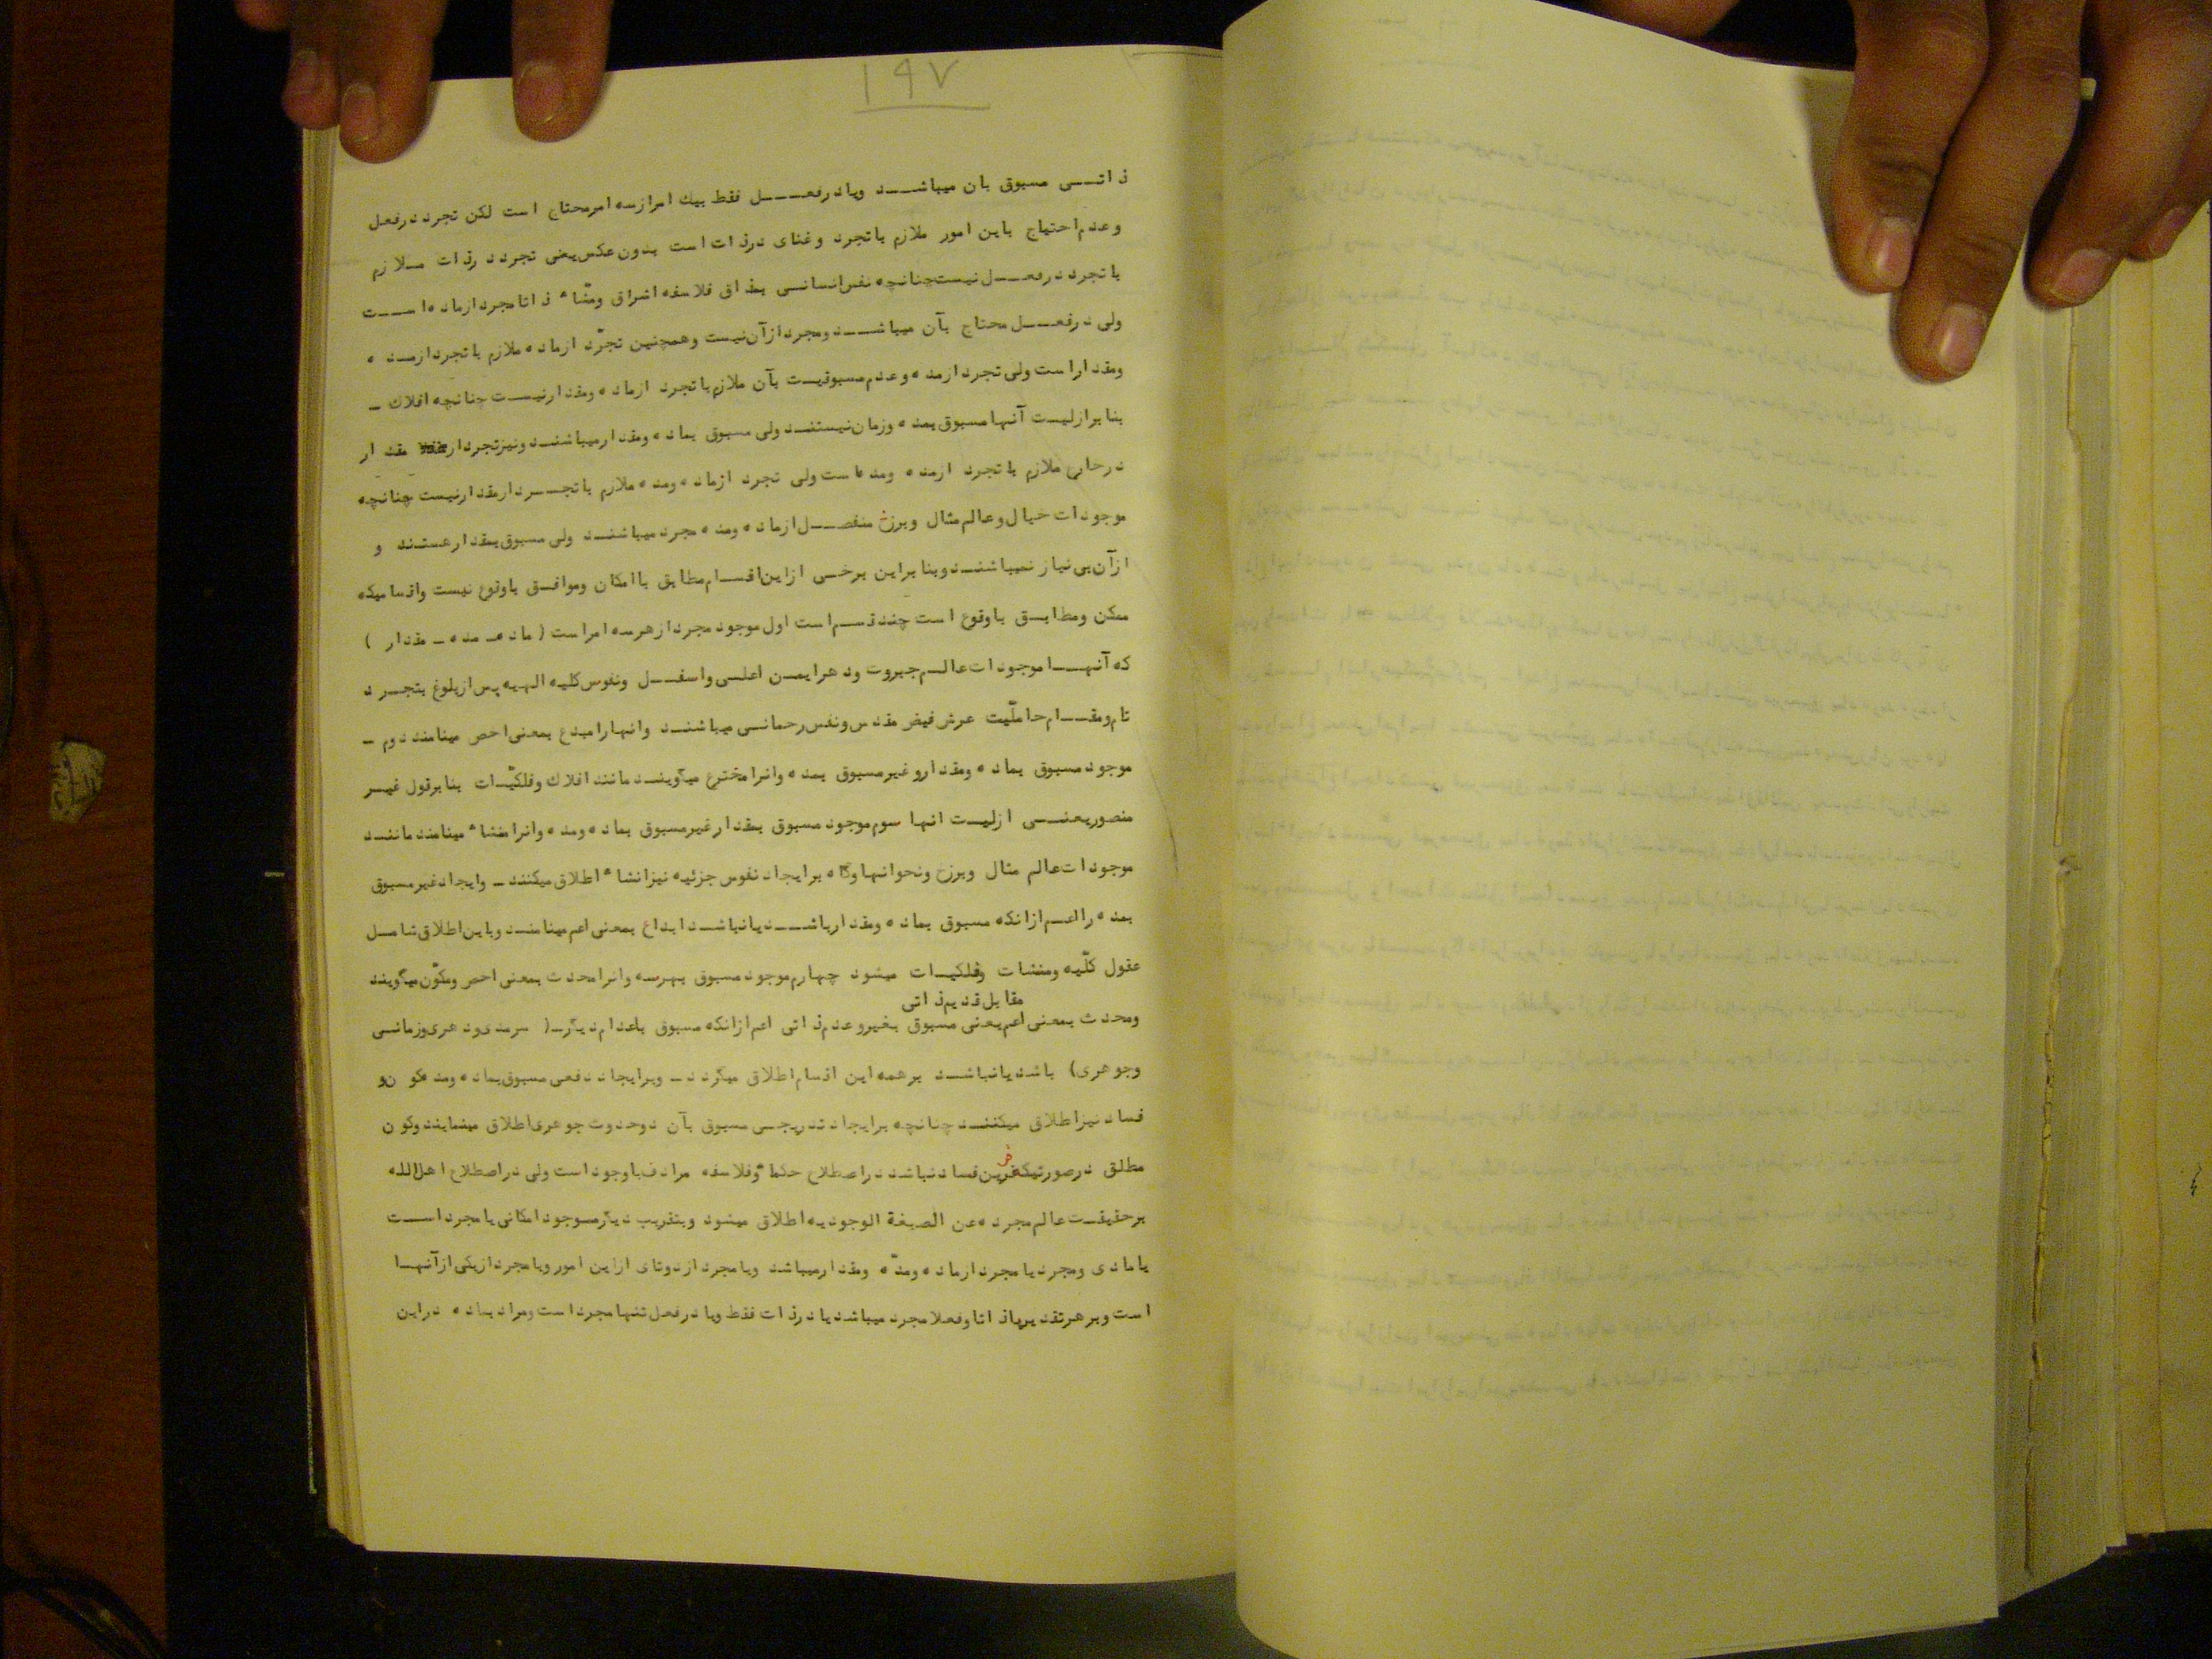 ۱۹۷
ذاتی مسبوق بان میباشد ویادرفعل فقط بیك امرازسه امرمحتاج است لکن تجرددرفعل
وعدم احتیاج باین امور ملازم باتجرد وغنای درذات است بدون عکس یعنی تجرددرذات ملازم
باتجرددرفعل نیست چنانچه نفس انسانی بمذاق فلاسفه اشراق ومشّاء ذاتا مجردازماده است
ولی درفعل محتاج بآن میباشد ومجردازآن نیست وهمچنین تجرّد ازماده ملازم باتجردازمده
ومقداراست ولی تجردازمده وعدم مسبوقیت بآن ملازم باتجرد ازماده ومقدارنیست چنانچه افلاك -
بنابرازلیت آنهامسبوق بمده وزمان نیستند ولی مسبوق بماده ومقدارمیباشند ونیزتجرداز مقدار
درخارج ملازم باتجرد ازمده ومده است ولی تجرد ازماده ومده ملازم باتجردازمقدارنیست چنانچه
موجودات خیال وعالم مثال وبرزخ منفصل ازماده ومده مجرد میباشند ولی مسبوق بمقدارهستند و
ازآن بی نیاز نمیباشند وبنابراین برخی ازاین اقسام مطابق باامکان وموافق باوقوع نیست واقسامیکه
ممکن ومطابق باوقوع است چندقسم است اول موجودمجردازهرسه امراست (ماده - مده - مقدار )
که آنها موجودات عالم جبروت ودهرایمن اعلی واسفل ونفوس کلیه الهیه پس ازبلوغ بتجرد
تام ومقام حاملّیت عرش فیض مقدس ونفس رحمانی میباشند وانهارامبدع بمعنی اخص مینامند دوم -
موجودمسبوق بماده ومقداروغیرمسبوق بمده وانرامخترع میگویند مانندافلاك وفلکیّات بنابرقول غیر
منصوریعنی ازلیت انها سوم موجودمسبوق بمقدارغیرمسبوق بماده ومده وانرامنشاء مینامندمانند
موجودات عالم مثال وبرزخ ونحوانهاوگاه برایجادنفوس جزئیه نیزانشاء اطلاق میکنند - وایجادغیرمسبوق
بمده رااعم ازانکه مسبوق بماده ومقدارباشد یانباشد ابداع بمعنی اعم مینامند وباین اطلاق شامل
عقول کلّیه ومنشات وفلکیات میشود چهارم موجودمسبوق بهرسه وانرامحدث بمعنی اخص ومکوّن میگویند
مقابل قدیم ذاتی
ومحدث بمعنی اعم یعنی مسبوق بغیروعدم ذاتی اعم ازانکه مسبوق باعدام دیگر-( سرمدی ودهری وزمانی
وجوهری) باشدیانباشد برهمه این اقسام اطلاق میگردد - وبرایجاددفعی مسبوق بماده ومده کون و
فسادنیزاطلاق میکنند چنانچه برایجادتدریجی مسبوق بآن دوحدوث جوهری اطلاق مینمایندوکون
مطلق درصورتیکه قرین فسادنباشد دراصطلاح حکماء وفلاسفه مرادف باوجوداست ولی دراصطلاح اهل الله
برحقیقت عالم مجرده عن الصبغة الوجودیه اطلاق میشود وبتقریب دیگرموجودامکانی یامجرداست
یامادی ومجردیامجردازماده ومدّه ومقدارمیباشد ویامجرد ازدوتای ازاین امور ویامجردازیکی ازآنها
است وبرهرتقدیریاذاتاوفعلا مجردمیباشدیادرذات فقط ویادرفعل تنهامجرداست ومرادبماده دراین